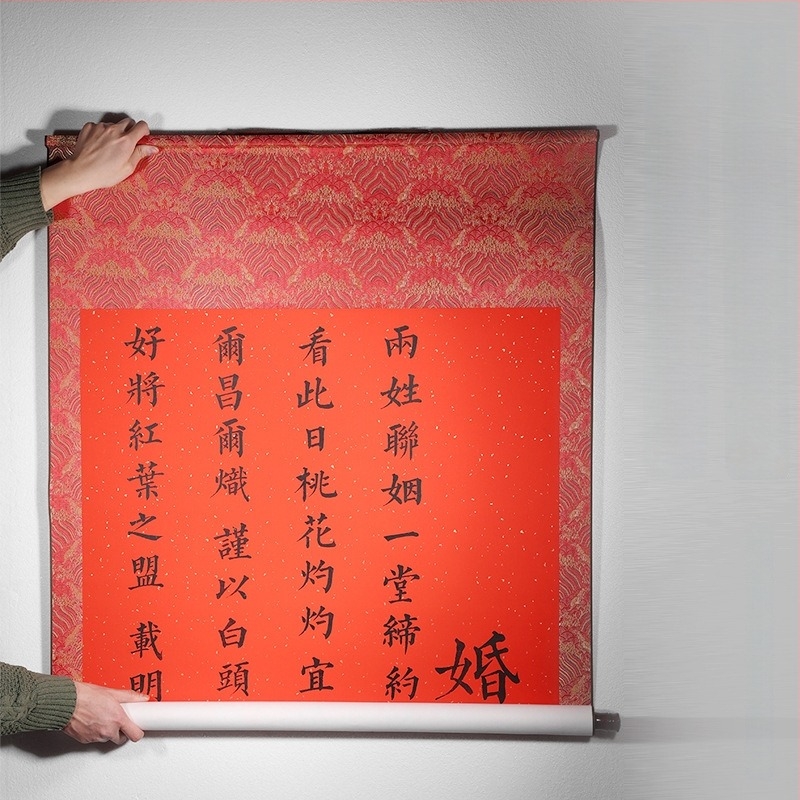 婚
兩姓聯姻一堂締約
看此日桃花灼灼宜
爾昌爾熾 謹以白頭
好將紅葉之盟 載明